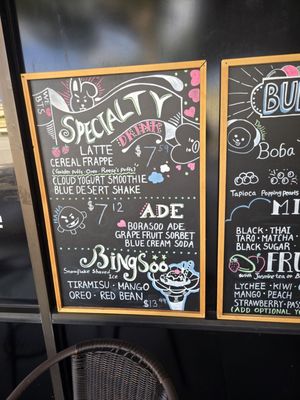 SPECIALTY
DRINK
LATTE
CEREAL FRAPPE
$7.59
CLOUD YOGURT SMOOTHIE
BLUE DESERT SHAKE
$7.12
ADE
BORASOO ADE
GRAPE FRUIT SORBET
BLUE CREAM SODA
BingSoo
Snowflake Shaved
Ice
TIRAMISU · MANGO
OREO · RED BEAN
$13.99
BU
Boba
Tapioca Popping pearls
MI
BLACK · THAI
TARO · MATCHA
BLACK SUGAR
FRU
LYCHEE · KIWI
MANGO · PEACH
STRAWBERRY
(ADD OPTIONAL